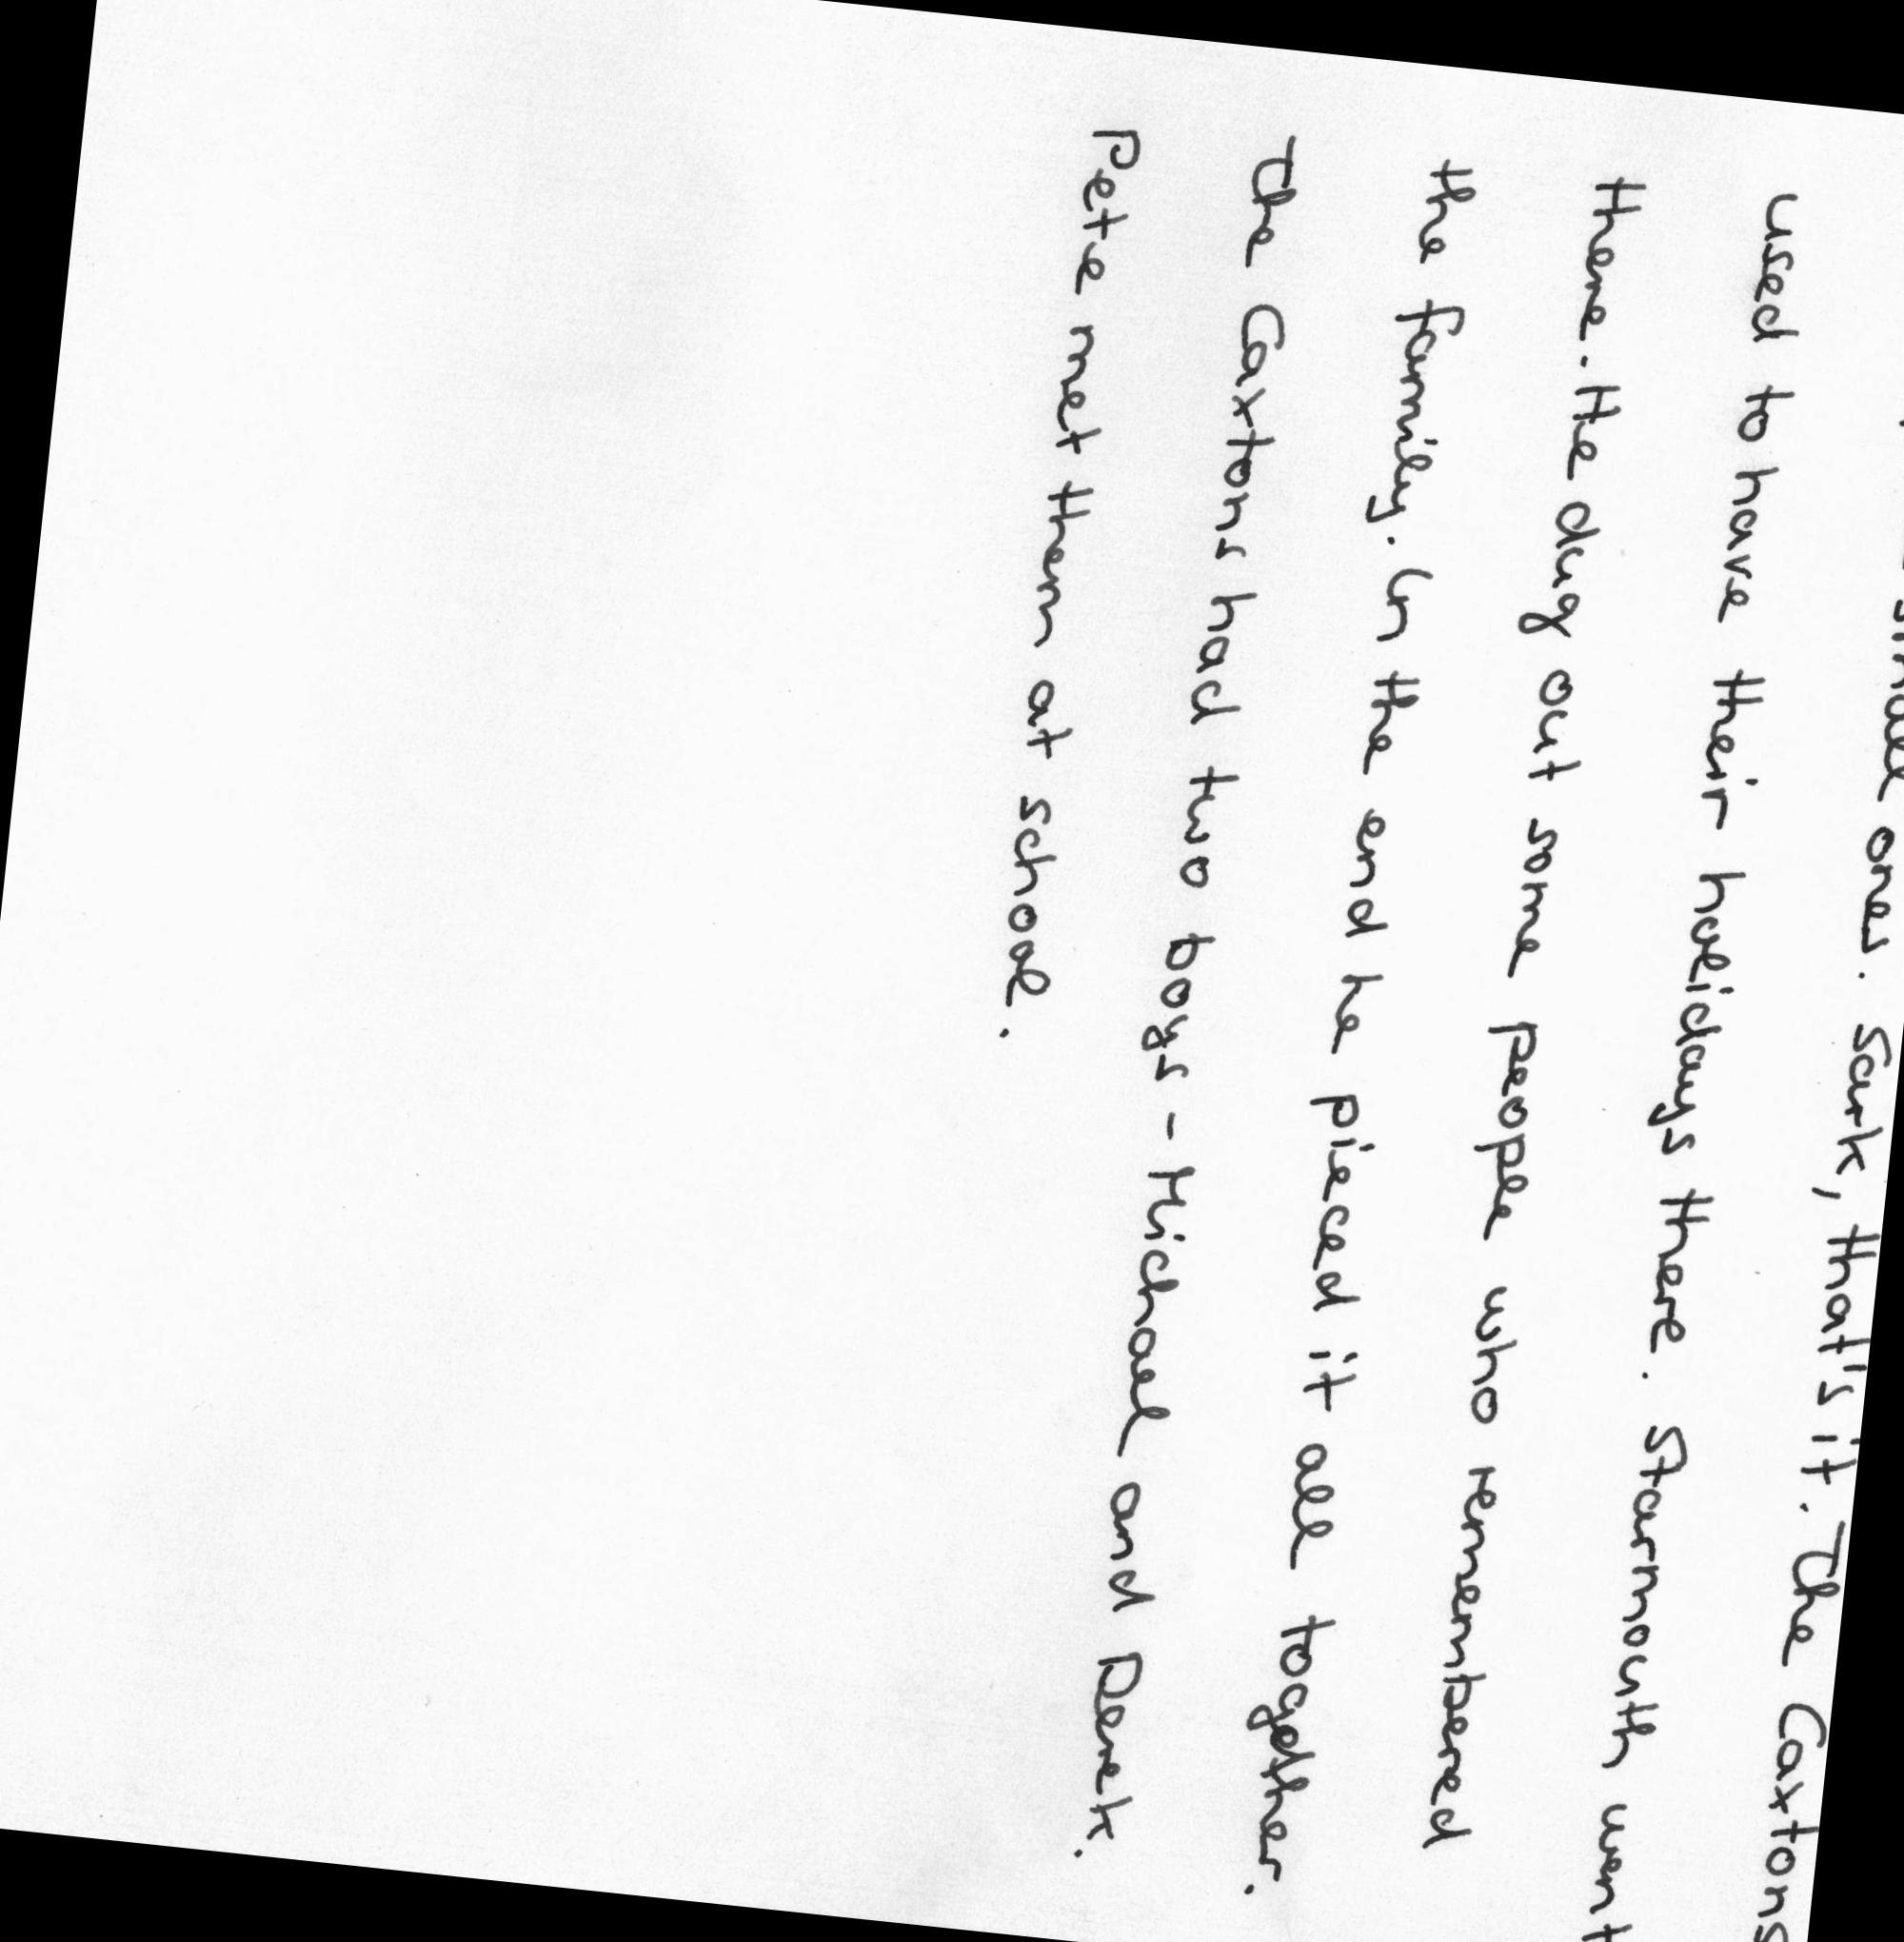 small ones. Sark, that's it. The Caxtons
used to have their holidays there. Starmouth went
there. He dug out some people who remembered
the family. In the end he pieced it all together.
The Caxtons had two boys - Michael and Derek.
Pete met them at school.